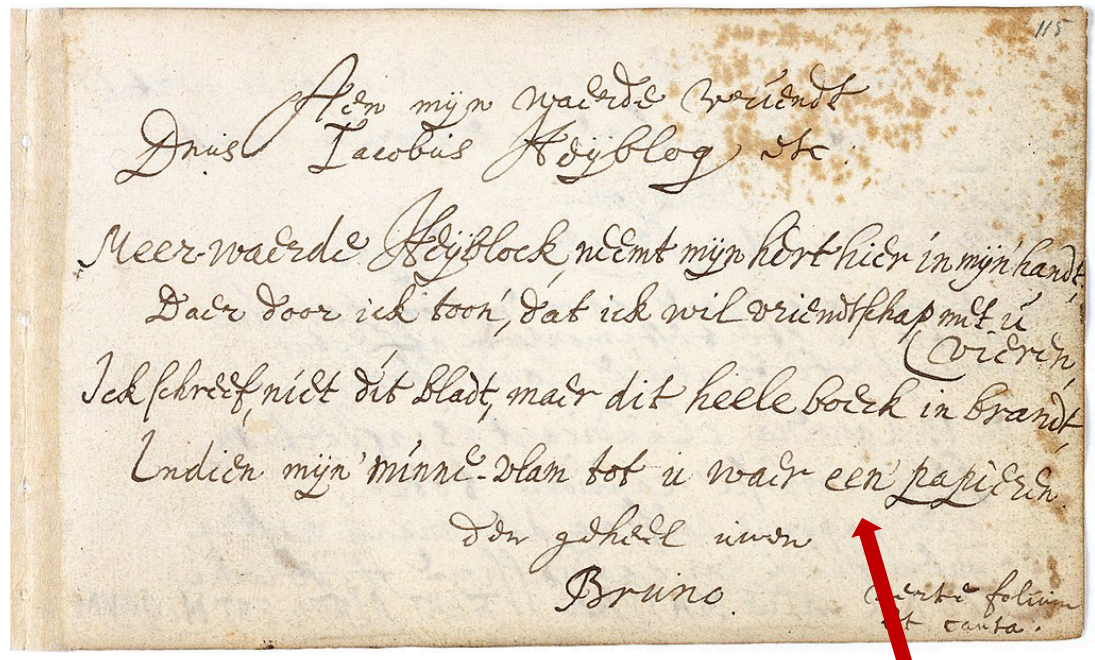 115
Aen mijn waerde vriendt
Dnus Iacobus Heÿblog etc:
Meer-waerde Heÿblock, neemt mijn hert hier in mijn handt,
Daer door ick toon', dat ick wil vriendtschap met u
(vieren,
Ick schreef, niet dit bladt, maer dit heele boeck in brandt,
Indien mijn minne-vlam tot u waer een' papieren.
den geheel uwen
Bruno.
verte folium
et canta.